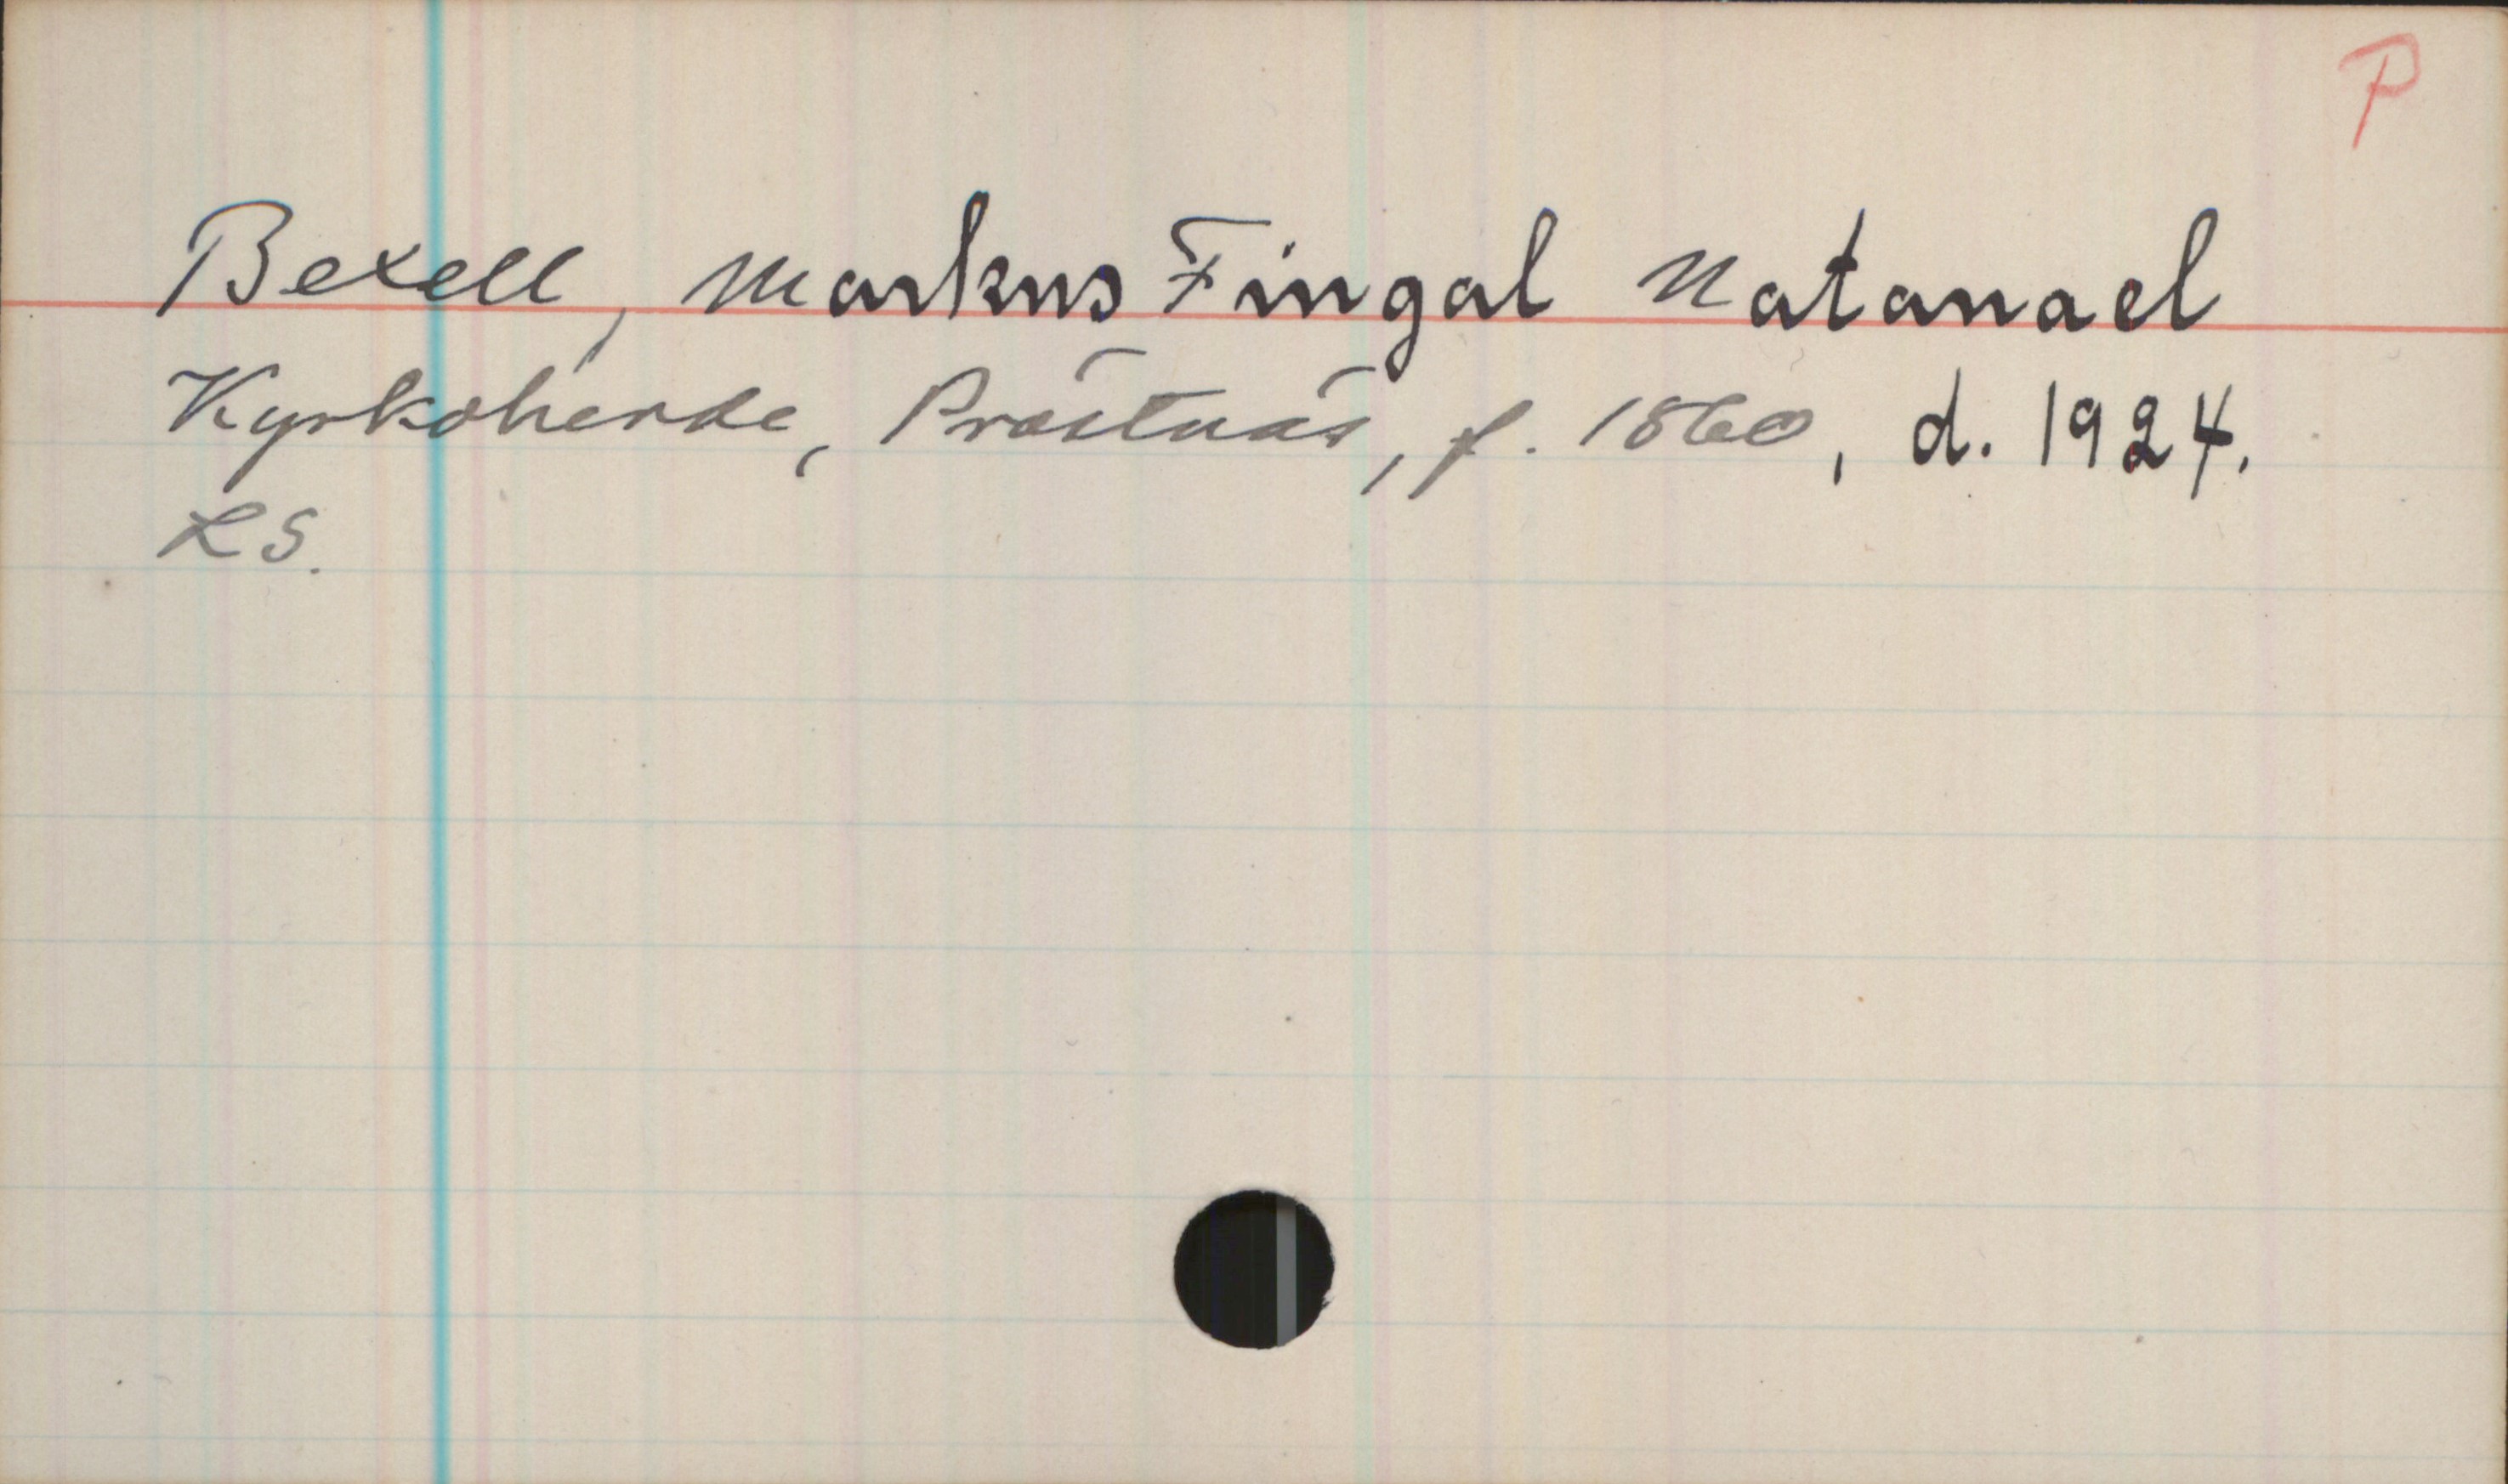 P
Bexell, Markus Fingal Natanael
Kyrkoherde, Prästnäs, f. 1860, d. 1924.
LS.